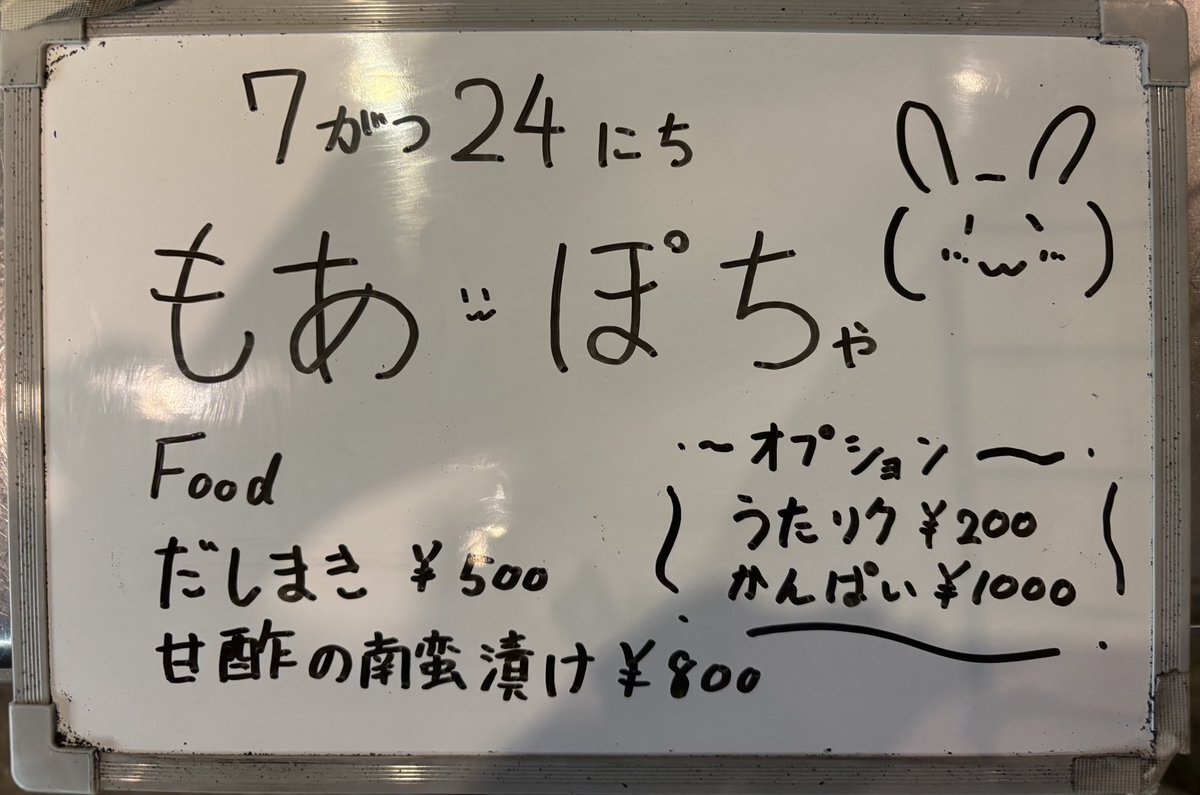 7がつ24にち
もあ ぽちゃ
Food
だしまき ¥500
甘酢の南蛮漬け ¥800
〜オプション〜
うたリク ¥200
かんぱい ¥1000